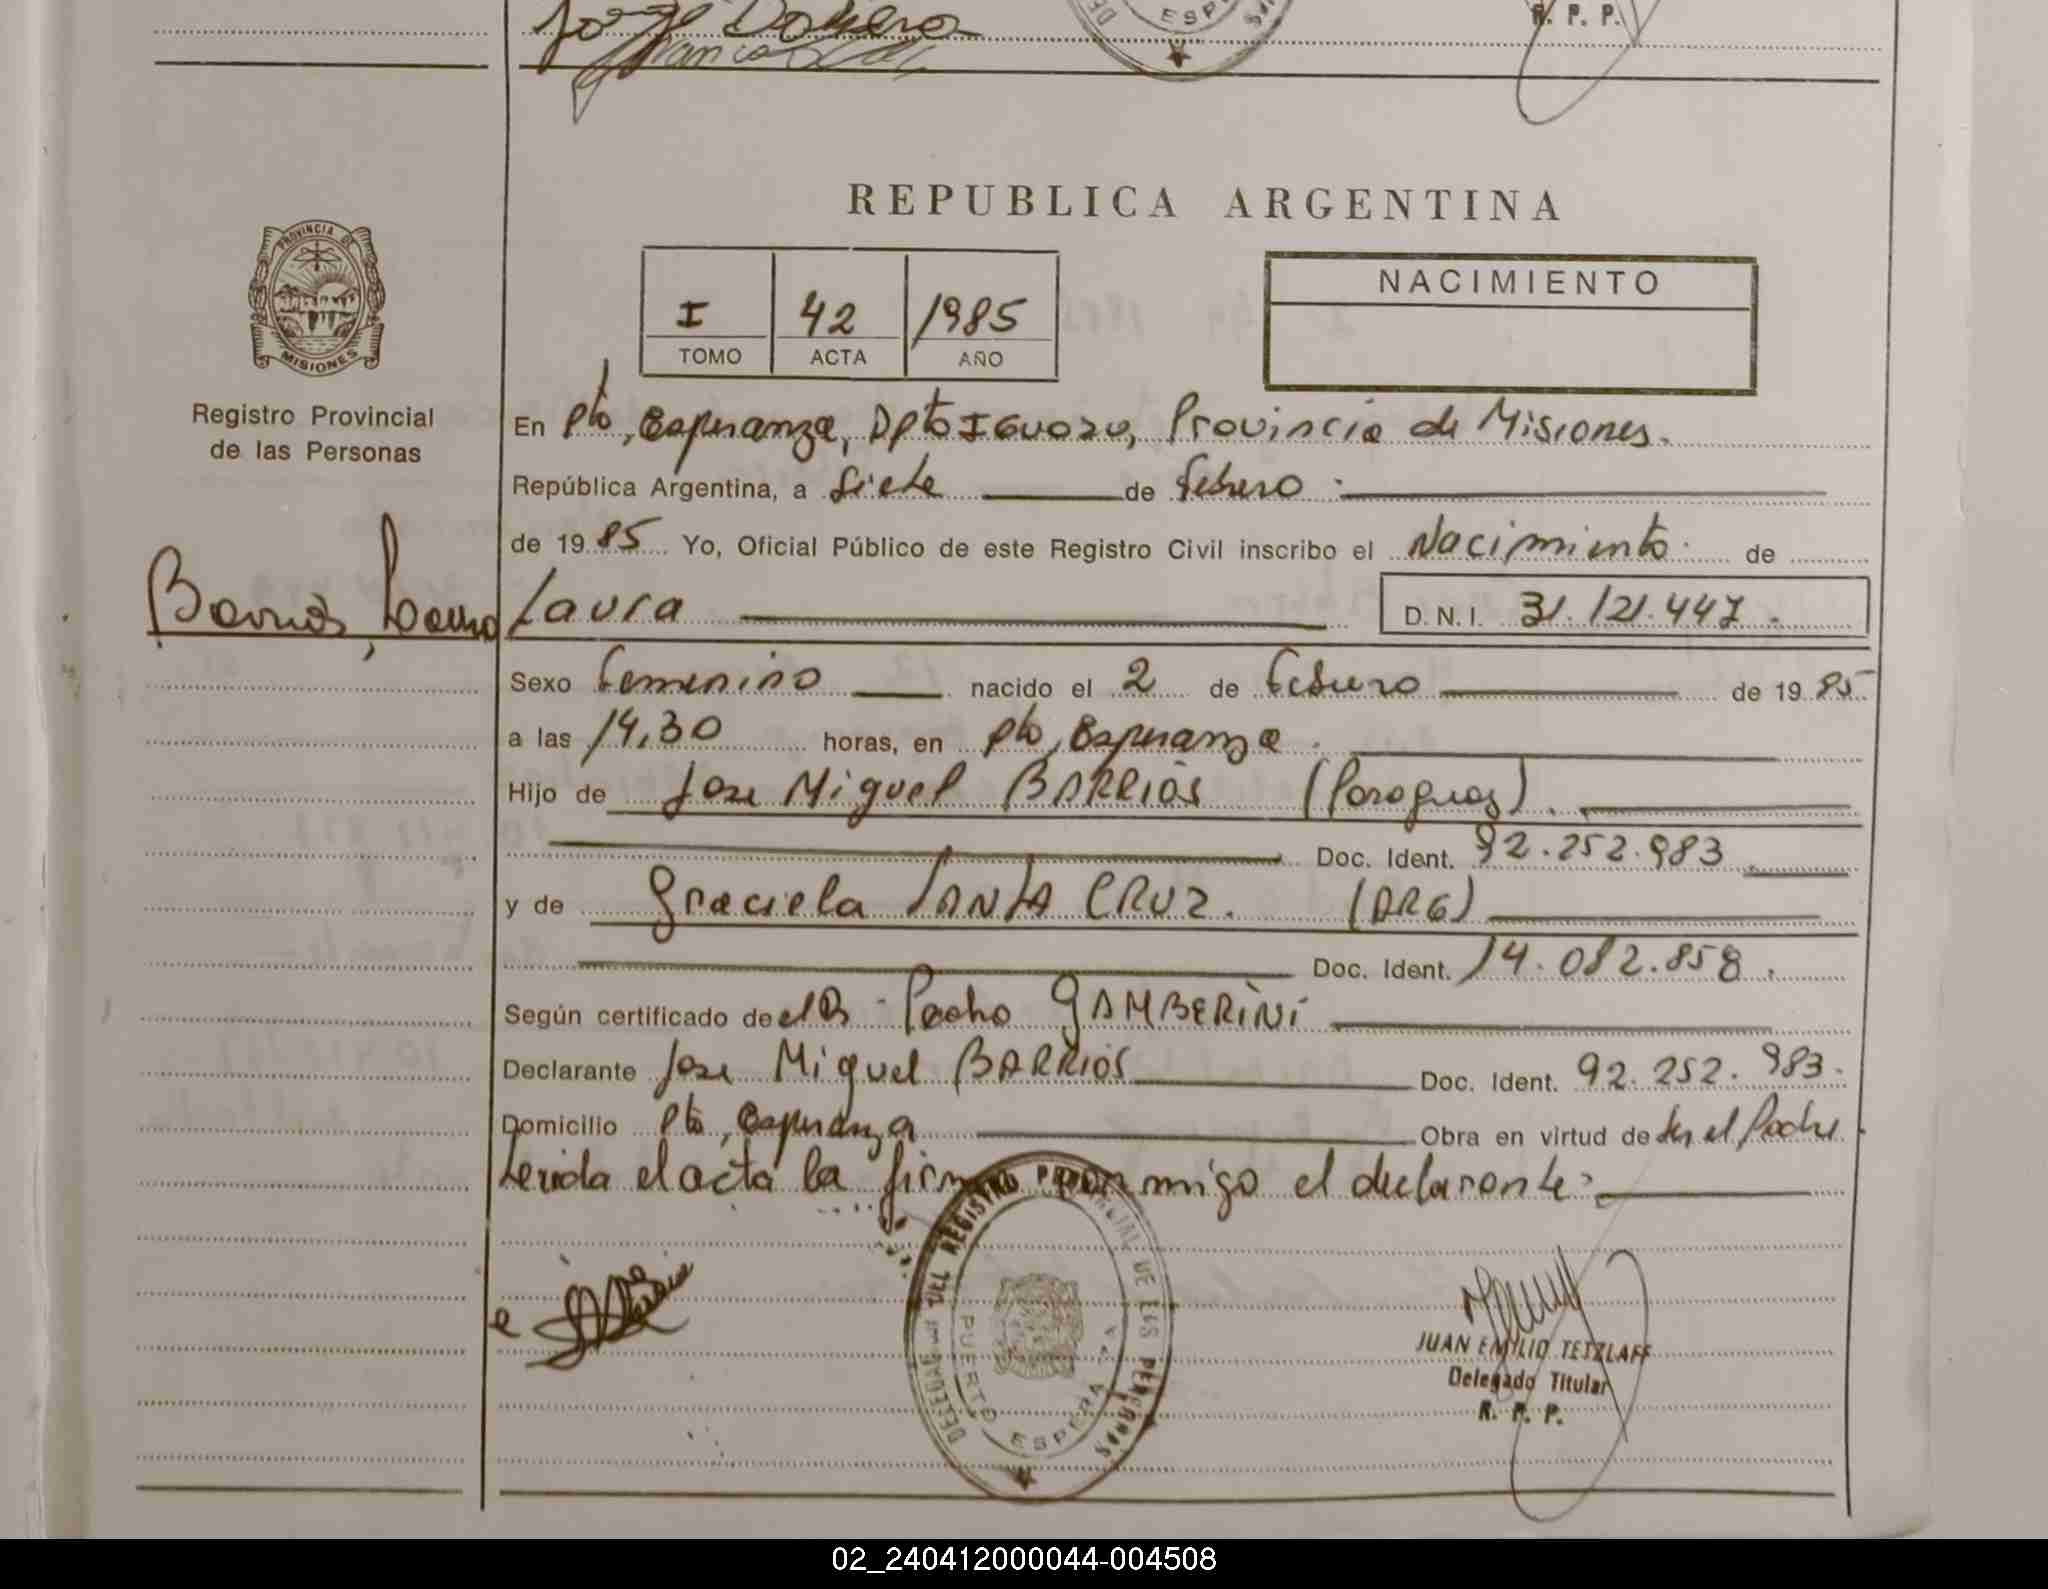 Jorge Domero
R. P. P.
REPUBLICA ARGENTINA
PROVINCIA DE
MISIONES
Registro Provincial
de las Personas
I 42 1985
TOMO ACTA AÑO
NACIMIENTO
En Pto, Esperanza, Dpto IGUAZU, Provincia de Misiones.
República Argentina, a Siete de febrero
de 1985 Yo, Oficial Público de este Registro Civil inscribo el Nacimiento de
Barrios, Laura
Laura D. N. I. 31.121.447.
Sexo Femenino nacido el 2 de Febrero de 1985
a las 14,30 horas, en Pto, Esperanza.
Hijo de Jose Miguel BARRIOS (Paraguay).
Doc. Ident. 92.252.983
y de Graciela SANTA CRUZ. (ARG)
Doc. Ident. 14.082.858.
Según certificado de el Dr. Pedro GAMBERINI
Declarante Jose Miguel BARRIOS Doc. Ident. 92.252.983.
Domicilio Pto, Esperanza Obra en virtud de ser el Padre
Leida el acta la firma conmigo el declarante.
DELEGACION DEL REGISTRO PROVINCIAL DE LAS PERSONAS
PUERTO ESPERANZA
JUAN EMILIO TETZLAFF
Delegado Titular
R. P. P.
02_240412000044-004508